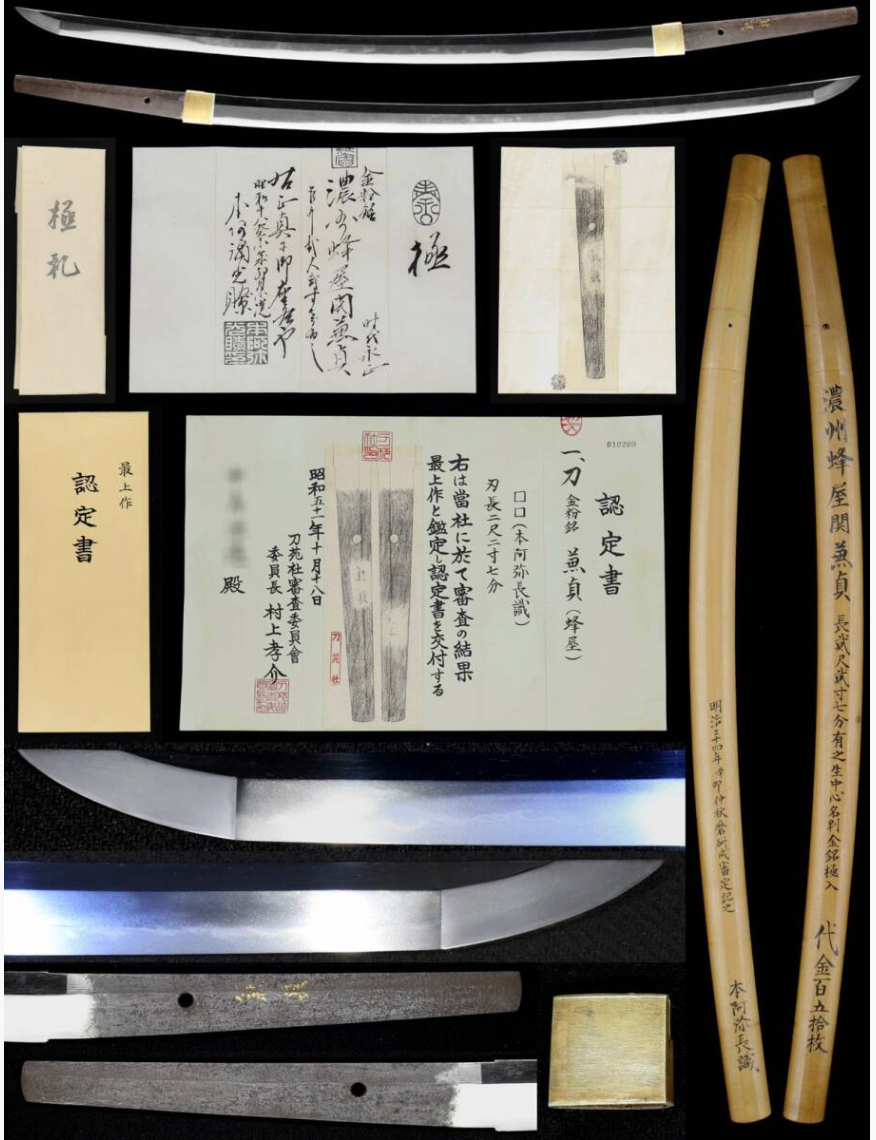 極札
極
金粉銘
濃州蜂屋関兼貞
時代永正
右正真ニ御座候也
本阿彌光
最上作
認定書
010209
認定書
一、刀 金粉銘 兼貞(蜂屋)
□□(本阿弥長識)
刃長二尺二寸七分
右は當社に於て審査の結果
最上作と鑑定し認定書を交付する
昭和五十一年十月十八日
刀苑社審査委員會
委員長 村上孝介
刀苑社
殿
濃州蜂屋関兼貞 長弐尺弐寸七分有之生中心名判金銘極入 代金百五拾枚
明治二十四年辛卯仲秋磨研成審定記之 本阿弥長識